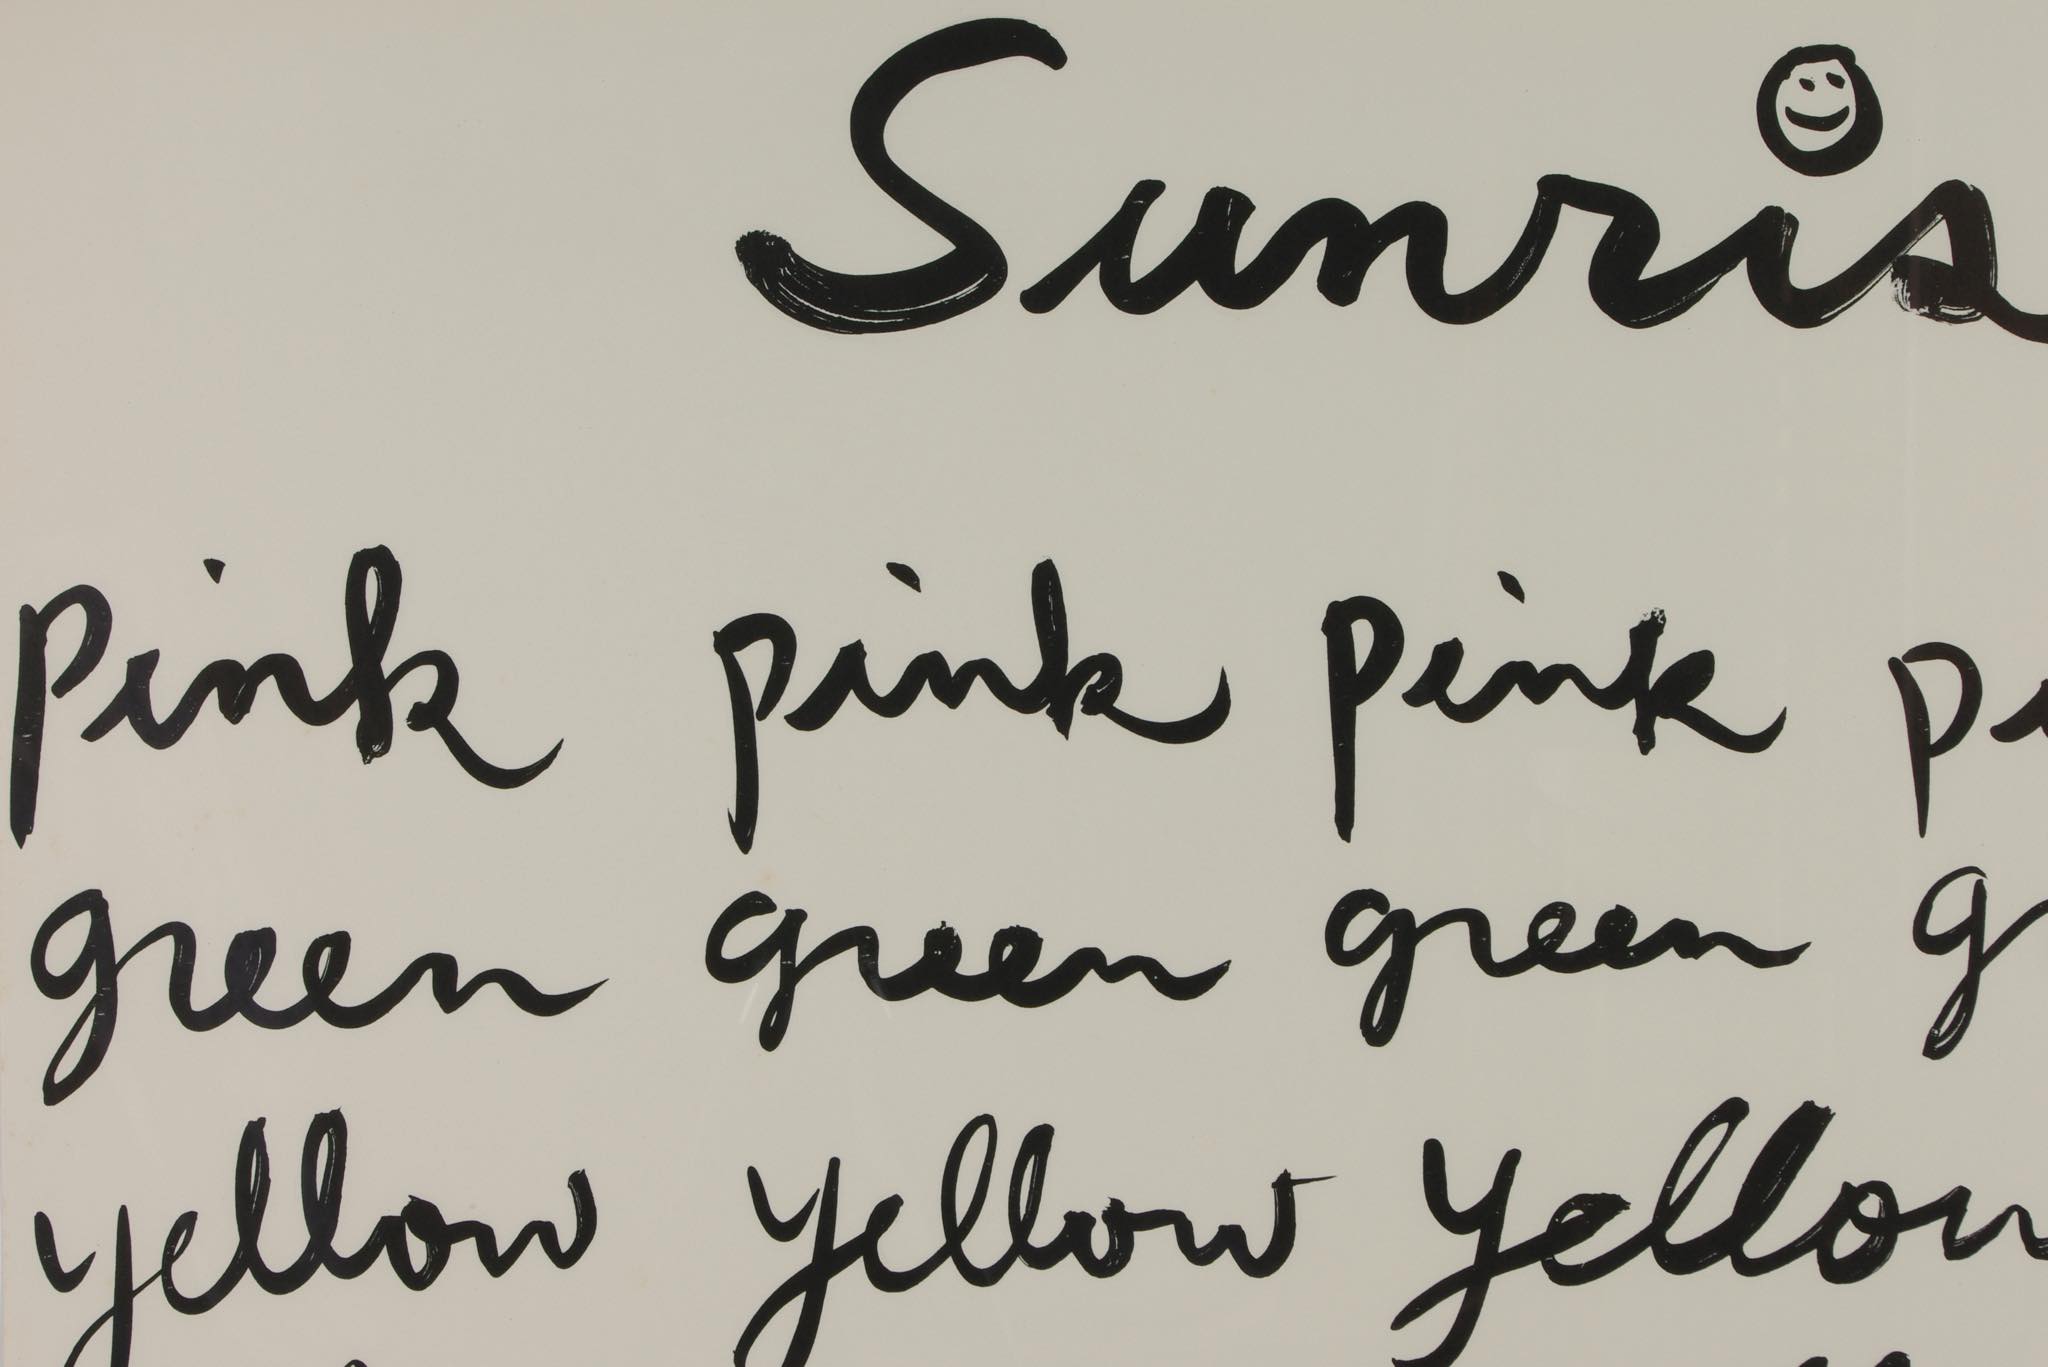 Sunris
pink pink pink pi
green green green gr
yellow yellow yellow